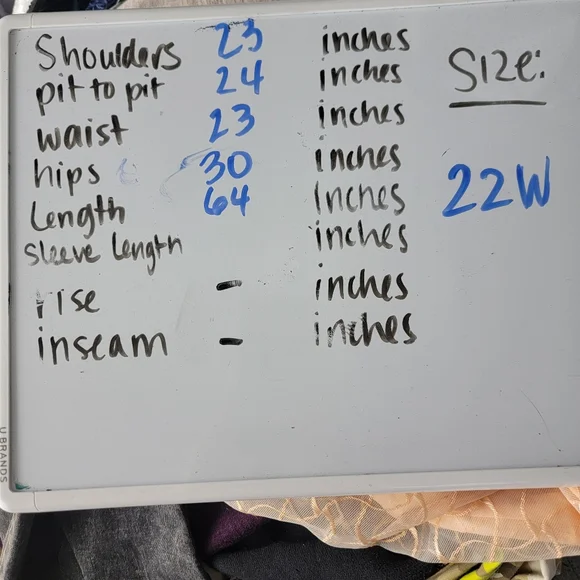 Shoulders 23 inches
pit to pit 24 inches
waist 23 inches
hips 30 inches
Length 64 Inches
sleeve length inches
rise - inches
inseam - inches
Size:
22W
U BRANDS